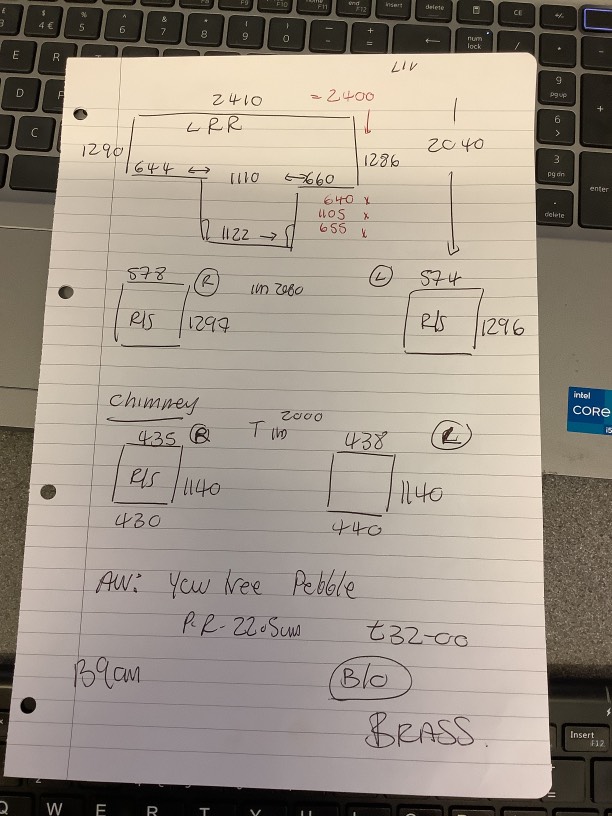 LIV
2410 = 2400
LRR
1290 1286 2040
644 ↔ 1110 ↔ 660
640 x
1105 x
655 x
1122 →
578 R 1m 2080 L 574
R/S 1297 R/S 1296
Chimney
435 R T 1m 2000 438 L
R/S 1140 1140
430 440
AW: Yew tree Pebble
P.R-22.5cm £32-00
B9am B/O
BRASS.
intel
CORE
i5
insert
delete
CE
num lock
9
pg up
6
3
pg dn
enter
delete
4 €
5
6
7
8
9
0
E
R
D
C
Insert
F12
Q W E R T